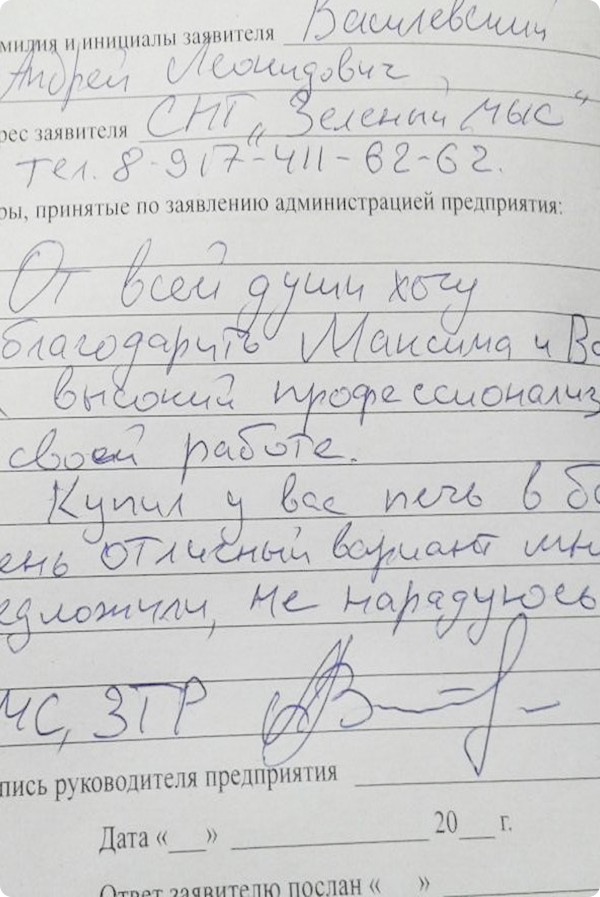 милия и инициалы заявителя Василевский
Андрей Леонидович,
рес заявителя СНТ „Зеленый мыс“
тел. 8-917-411-62-62.
ры, принятые по заявлению администрацией предприятия:
От всей души хочу
благодарить Максима и Ва
высокий профессионализ
своей работе.
Купил у вас печь в ба
ень отличный вариант мн
едложили, не нарадуюсь
МС, ЗТР
пись руководителя предприятия
Дата «___» ____________ 20___ г.
Ответ заявителю послан « »